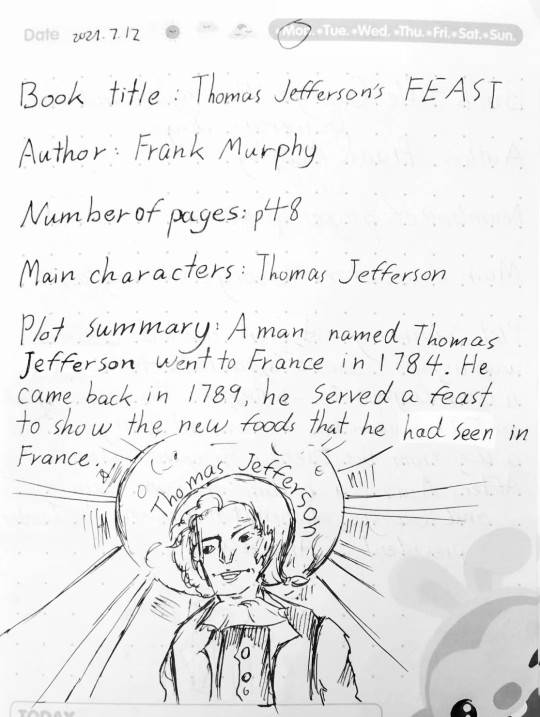 Date 2021.7.12 Mon. Tue. Wed. Thu. Fri. Sat. Sun.
Book title : Thomas Jefferson's FEAST
Author : Frank Murphy
Number of pages: p48
Main characters : Thomas Jefferson
Plot summary : A man named Thomas
Jefferson went to France in 1784. He
came back in 1789, he served a feast
to show the new foods that he had seen in
France.
Thomas Jefferson
TODAY